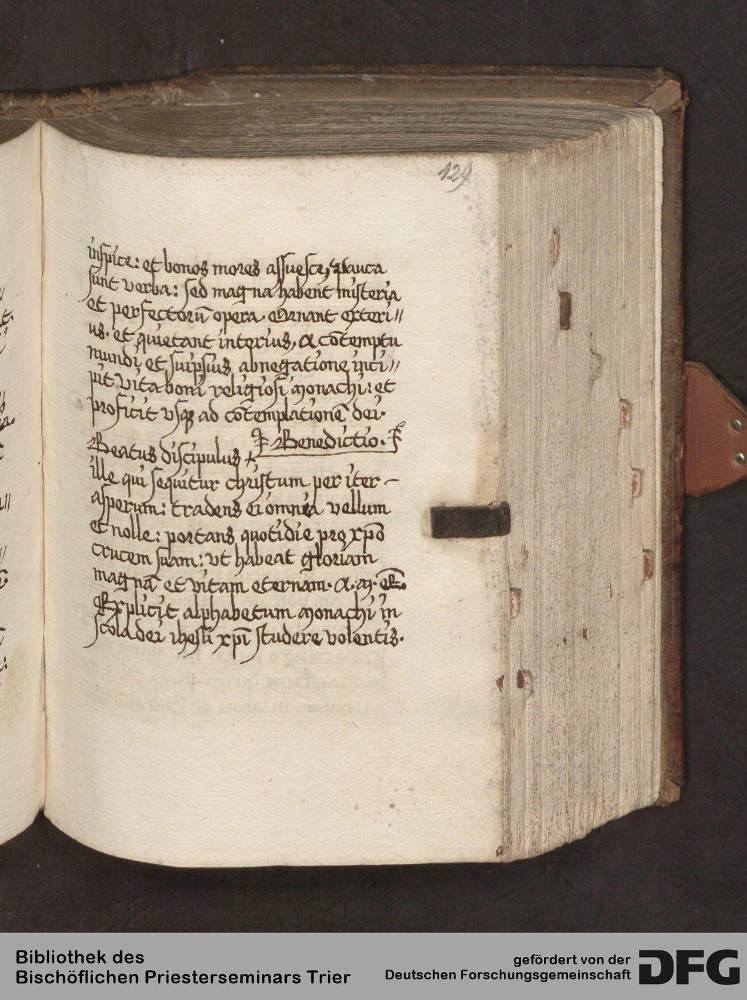 129
inspice: et bonos mores assuesce, Pauca
sunt verba: sed magna habent misteria
et perfectorū opera. Ornant exteri//
us. et quietant interius, A cōtemptu
mundi et suipsius abnegatione inci//
pit vita boni religiosi monachi: et
proficit vsqꝫ ad cōtemplationē dei.
Benedictio.
Beatus discipulus
ille qui sequitur christum per iter
asperum: tradens ei omnia vellum
et nolle: portans quotidie pro xpō
crucem suam: vt habeat gloriam
magnā et vitam eternam. A. M. E.
Explicit alphabetum monachi in
scola dei ihesu xpī studere volentis.
Bibliothek des
Bischöflichen Priesterseminars Trier
gefördert von der
Deutschen Forschungsgemeinschaft
DFG